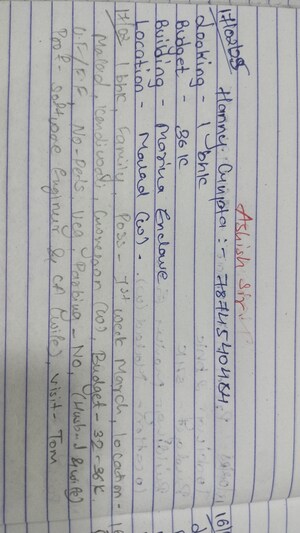 Ashish
17/02/25 Hanny Gupta :- 7874540484
Looking - 1 bhk
Budget - 36k
Building - Marina Enclave
Location - Malad (W) -
17/02 1 bhk, Family, Poss - 1st week March, location -
Malad, Kandivali, Goregaon (W), Budget - 32-36k
U.F/F.F, No-Pets, Veg, Parking - No, (Husband & wife)
Prof - Software Engineer & CA (wife), Visit - Tom
16/